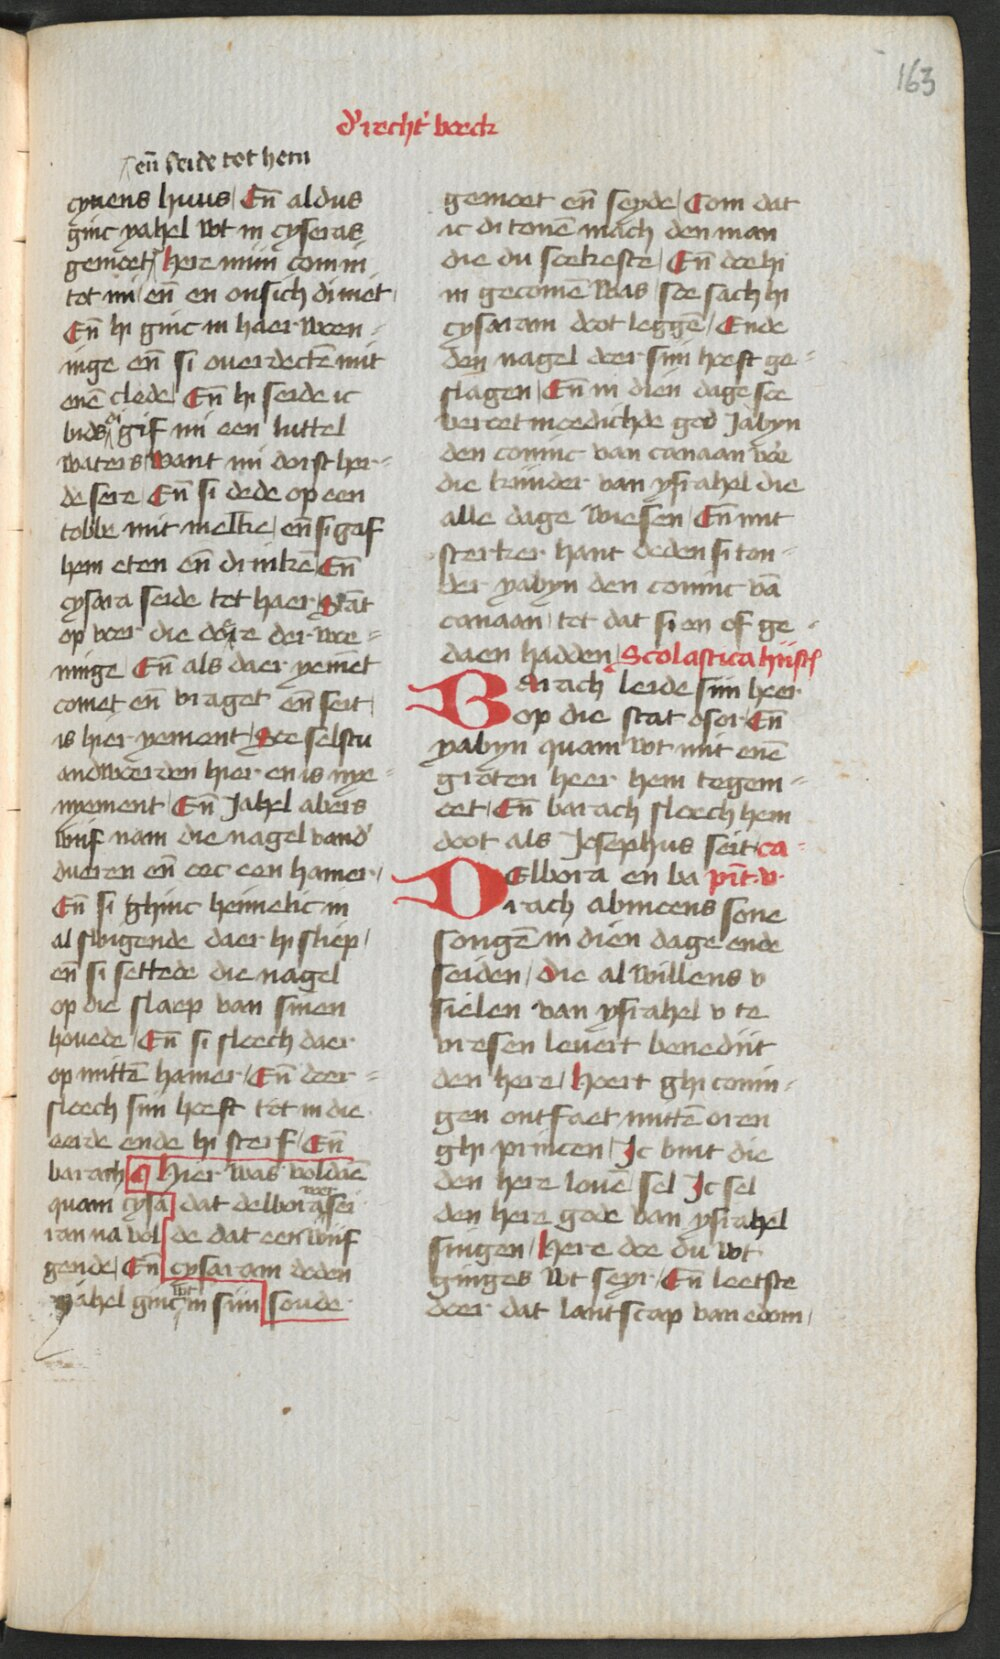 163
d' recht' boeck
en̄ seide tot hem
cynens huus / En̄ aldus
ginc yahel wt in cysaras
gemoet / here mijn com in
tot mi / en̄ en onsich di niet /
En̄ hi ginc in haer woen-
inge en̄ si ouerdecten̄ mit
enē clede / En̄ hi seide ic
bids di gif mi een luttel
waters / want mi dorst her-
de sere / En̄ si dede op een
tobbe mit melke / en̄ si gaf
hem eten en̄ drinkē / En̄
cysara seide tot haer / Stāt
op voer die dore der woe-
ninge En̄ als daer yemēt
comet en̄ vraget en̄ seit /
is hier yement / Soe selstu
andwoerden hier en is nye-
nyement / En̄ Jahel abers
wijf nam die nagel vand'
dueren en̄ oec een hamer /
En̄ si ghinc heimelic in
al swigende daer hi sliep /
en̄ si settede die nagel
op die slaep van sinen
houede / En̄ si sloech daer
op mittē hamer / En̄ doer-
sloech sijn hoeft tot in die
eerde ende hi sterf / En̄
barach
quam cysa
ram na vol
gende / En̄
yahel ginc wt in sijn
¶ Hier was voldaē
dat delbora voer sei
de dat een wijf
cysaram doden
soude
gemoet en̄ seyde / Com dat
ic di tonē mach den man
die du soekeste / En̄ doe hi
in gecomē was / soe sach hi
cysaram doot leggē / Ende
den nagel doer sijn hoeft ge-
slagen / En̄ in dien dage soe
veroetmoedichde god Jabyn
den coninc van canaan voer
die kinder van ysrahel die
alle dage wiesen / En̄ mit
sterker hant deden si ton-
der yabyn den coninc vā
canaan / tot dat si en of ge-
daen hadden / Scolastica hist'
Barach leide sijn heer
op die stat asor / En̄
yabyn quam wt mit enē
groten heer hem tegem-
oet / En̄ barach sloech hem
doot als Josephus seit / ca-
DElbora en ba pit̄. v.
rach abineens sone
songē in dien dage ende
seiden / die al willens v
sielen van ysrahel v te
vresen leuert benediit
den here / Hoert ghi conin-
gen ontfaet mittē oren
ghi princen / Ic bint die
den here louē sel Ic sel
den here gode van ysrahel
singen / Here doe du wt
ginges wt seyr / En̄ leetste
doer dat lantscap van edom /